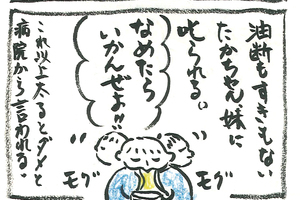 油断もすきもない
たかちゃん、妹に
叱られる。
なめたら
いかんぜよ!!
これ以上太るとダメと
病院から言われる。
モグ
モグ